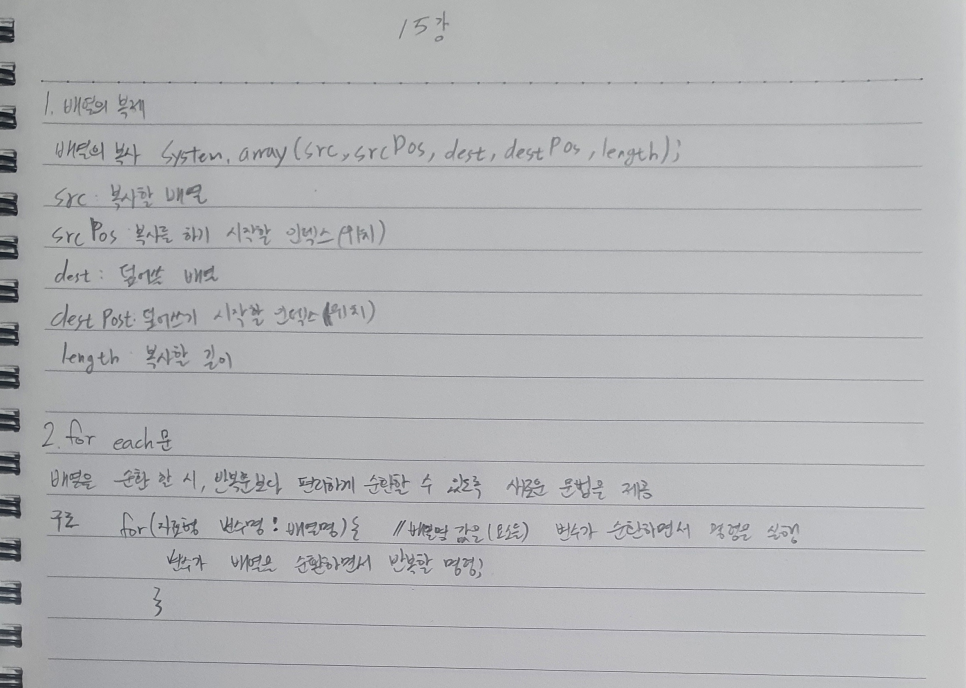 15강
1. 배열의 복제
배열의 복사 System.array(src, srcPos, dest, destPos, length);
src: 복사할 배열
srcPos: 복사를 하기 시작할 인덱스(위치)
dest: 덮어쓸 배열
dest Post: 덮어쓰기 시작할 인덱스(위치)
length 복사할 길이
2. for each문
배열을 순환 할 시, 반복문보다 편리하게 순환할 수 있도록 새로운 문법을 제공
구조 for(자료형 변수명 : 배열명){ //배열의 값을(요소를) 변수가 순환하면서 명령을 실행
변수가 배열을 순환하면서 반복할 명령;
}